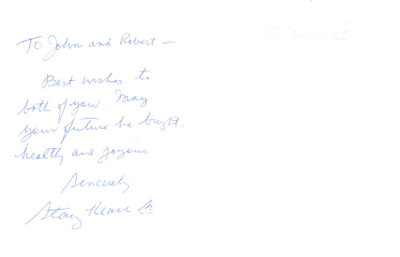 To John and Robert —
Best wishes to
both of you. May
your future be bright.
healthy and joyous
Sincerely